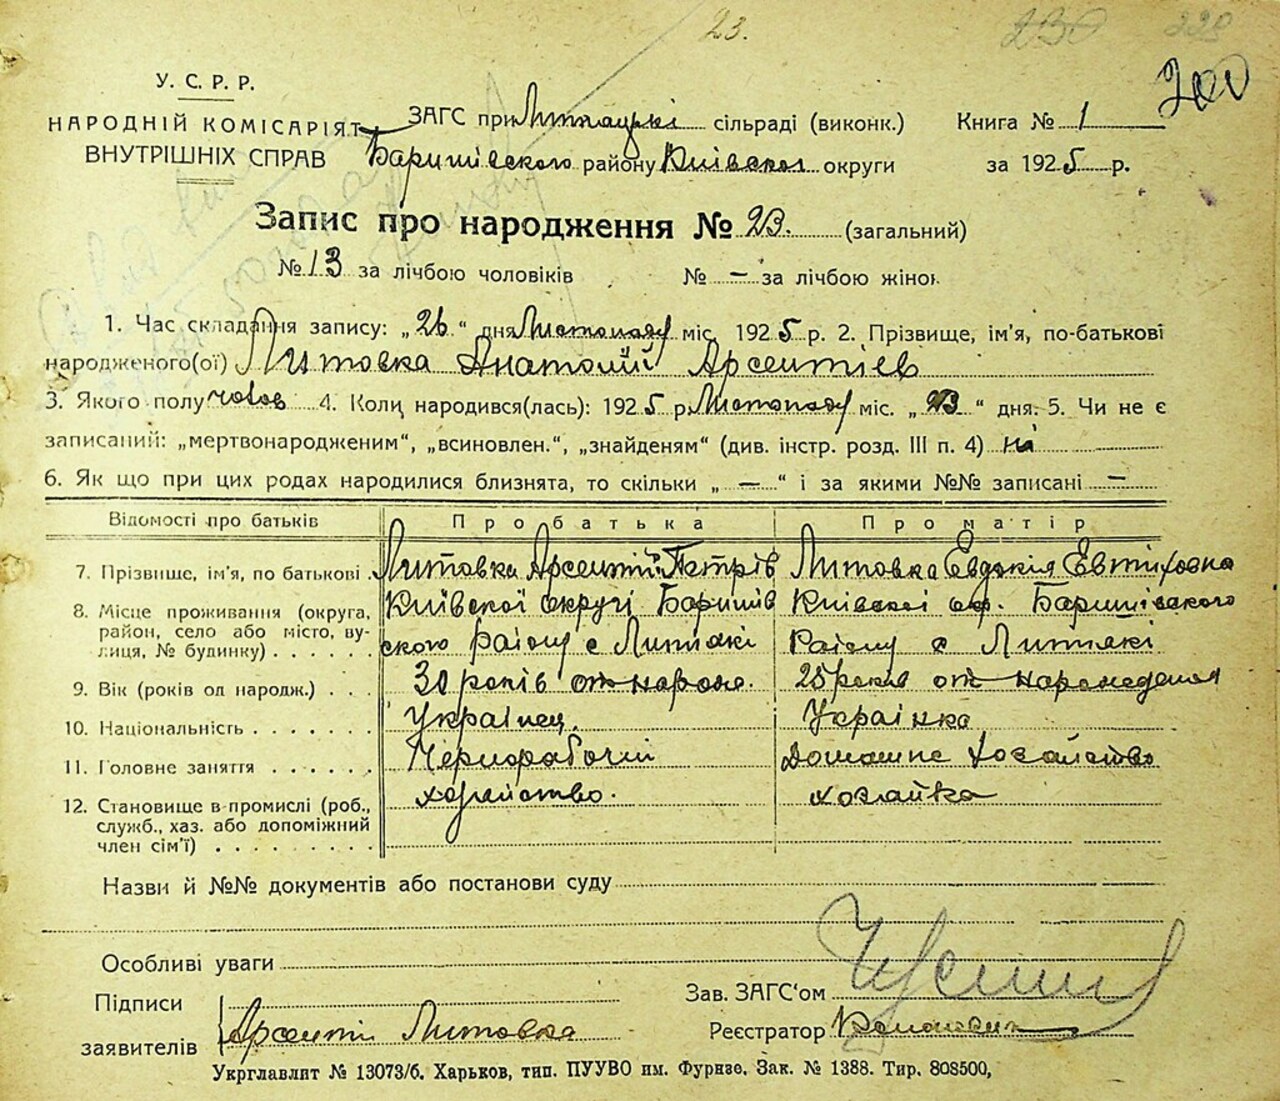 23.
230
220
200
У. С. Р. Р.
НАРОДНІЙ КОМІСАРІЯТ
ВНУТРІШНІХ СПРАВ
ЗАГС при сільраді (виконк.)
Баришівского району Київскої округи
Книга № 1
за 1925 р.
Запис про народження № 23. (загальний)
№ 13 за лічбою чоловіків № — за лічбою жінок
1. Час складання запису: „26“ дня Листопаду міс. 1925 р. 2. Прізвище, ім'я, по-батькові
народженого(ої) Литовка Анатолій Арсентієв
3. Якого полу чолов 4. Коли народився(лась): 1925 р. Листопаду міс. „23“ дня. 5. Чи не є
записаний: „мертвонародженим“, „всиновлен.“, „знайденям“ (див. інстр. розд. III п. 4) ні
6. Як що при цих родах народилися близнята, то скільки „—“ і за якими №№ записані —
Відомості про батьків Про батька Про матір
7. Прізвище, ім'я, по батькові Литовка Арсентій Петрів Литовка Евдокія Евтіховна
8. Місце проживання (округа, Київскої округі Баришів Київскої окр. Баришівского
район, село або місто, ву-
лиця, № будинку) ского району с Литвякі Району с Литвякі
9. Вік (років од народж.) 30 років от народж. 25 років от народження
10. Національність Украінец. Украінка
11. Головне заняття Чернорабочий Домашне хозайство
12. Становище в промислі (роб., хозайство. хозайка
служб., хаз. або допоміжний
член сім'ї)
Назви й №№ документів або постанови суду
Особливі уваги
Підписи
заявителів Арсенті Литовка
Зав. ЗАГС'ом
Реєстратор
Укрглавлит № 13073/б. Харьков, тип. ПУУВО им. Фурнзе. Зак. № 1388. Тир. 808500,